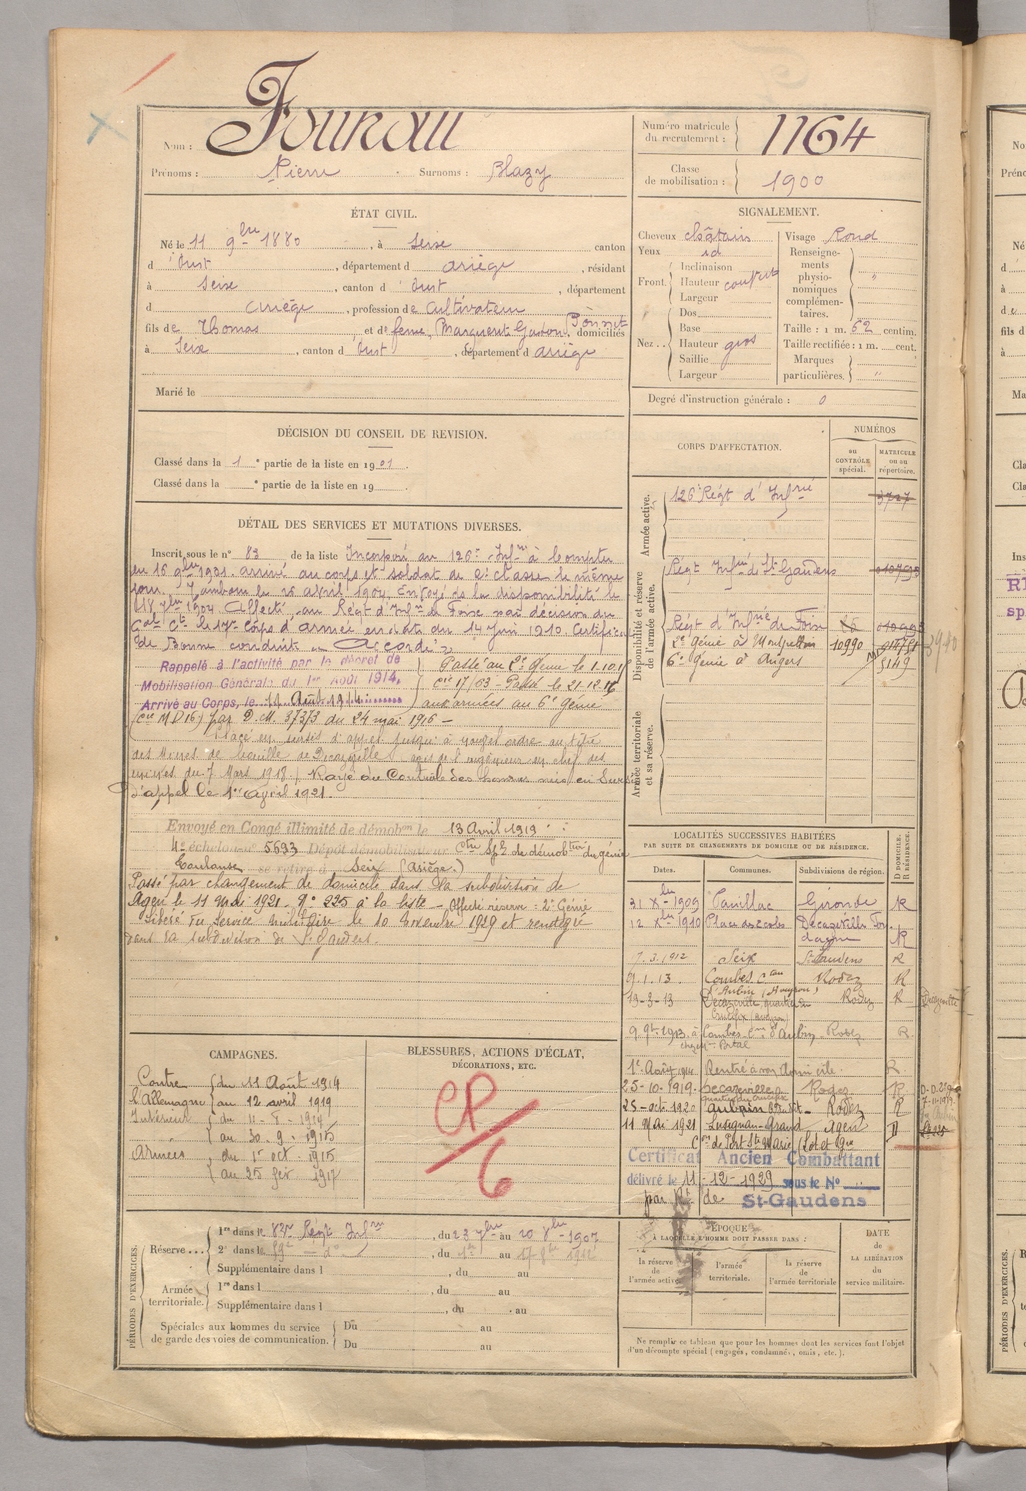 Nom : Fourau
Prénoms : Pierre Surnoms : Blazy
Numéro matricule du recrutement : 1164
Classe de mobilisation : 1900
ÉTAT CIVIL.
Né le 11 9bre 1880, à Seix canton
d'Oust, département d ariège, résidant
à Seix, canton d'Oust, département
d ariège, profession de Cultivateur
fils de Thomas et de domiciliés
à Seix, canton d'Oust, département d ariège
Marié le
SIGNALEMENT.
Cheveux châtains
Yeux id
Front. Inclinaison
Hauteur
Largeur
Nez.. Dos
Base
Hauteur gros
Saillie
Largeur
Visage Rond
Renseignements physionomiques complémentaires. "
Taille : 1 m. 62 centim.
Taille rectifiée : 1 m. cent.
Marques particulières. "
Degré d'instruction générale : 0
DÉCISION DU CONSEIL DE REVISION.
Classé dans la 1e partie de la liste en 1901.
Classé dans la e partie de la liste en 19
DÉTAIL DES SERVICES ET MUTATIONS DIVERSES.
Inscrit sous le n° 83 de la liste Incorporé au 126e Infrie à compter
du 16 9bre 1901. arrivé au corps et soldat de 2e classe le même
jour. Envoyé en la disponibilité le
18 7bre 1904. Affecté au Régt d'Infrie de Foix par décision du
Gal Ct le 17e Corps d'armée en date du 14 Juin 1910 Certificat
de Bonne conduite "Accordé"
Rappelé à l'activité par le décret de
Mobilisation Générale du 1er Août 1914.
Arrivé au Corps, le 11 Août 1914
Passé au 2e Génie le 1.10.15
cie 17/03 - Passé le 21.12.16
aux armées au 6e Génie
(cie M D 16) par D.M. 37373 du 24 mai 1916 —
Placé en sursis d'appel jusqu'à nouvel ordre au titre
des Mines de houille de Decazeville (avis de l'ingénieur en chef des
mines du 7 Mars 1918.) Rayé du Contrôle des hommes mis en Sursis
d'appel le 1er avril 1921.
Envoyé en Congé illimité de démobon le 13 Avril 1919
4e échelon no 5693 Dépôt démobilisateur Ctre Spl de démobtion du génie
Toulouse se retire à Seix (Ariège.)
Passé par changement de domicile dans la subdivision de
Agen le 11 mai 1921. N° 225 à la liste — Affecté réserve : 2e Génie
Libéré du service militaire le 10 Novembre 1929 et
dans la subdivision de St Gaudens.
CORPS D'AFFECTATION.
NUMÉROS
AU CONTRÔLE spécial.
MATRICULE ou au répertoire.
Armée active.
126e Régt d'Infrie 3727
Disponibilité et réserve de l'armée active.
Régt Infrie de St Gaudens
Régt d'Infrie de Foix
2e Génie à Montpellier 10990
6e Génie à Angers 5149
Armée territoriale et sa réserve.
LOCALITÉS SUCCESSIVES HABITÉES
PAR SUITE DE CHANGEMENTS DE DOMICILE OU DE RÉSIDENCE.
Dates. Communes. Subdivisions de région. D DOMICILE. R RÉSIDENCE.
31 Xbre 1909 Pauillac Gironde R
12 Xbre 1910 Place des écoles Decazeville R
7.3.1912 Seix St Gaudens R
9.1.13. Combes Cne d'Aubin (Aveyron) Rodez R
19-3-13 Decazeville Rodez R
9 9bre 1913 Combes Cne d'Aubin Rodez R
1er Août 1914 Rentré à son domicile. R
25-10.1919. Decazeville Rodez R
25-oct. 1920 Aubin Rodez R
11 Mai 1921 Lusignan-Grand Agen D
Cton de Port Ste Marie (Lot et Gne
Certificat Ancien Combattant
délivré le 11-12-1929 sous le No
par de St-Gaudens
CAMPAGNES.
Contre l'Allemagne
du 11 Août 1914
au 12 avril 1919
Intérieur
du 11-8-1914
au 30.9.1915
Armées
du 1er oct. 1915
au 25 fév 1917
BLESSURES, ACTIONS D'ÉCLAT,
DÉCORATIONS, ETC.
CP/6
PÉRIODES D'EXERCICES.
Réserve... 1re dans le 83e Régt Infrie, du 23 7bre au 20 8bre 1907
2e dans le, du au
Supplémentaire dans l, du au
Armée territoriale. 1re dans l, du au
Supplémentaire dans l, du au
Spéciales aux hommes du service de garde des voies de communication.
Du au
Du au
ÉPOQUE
À LAQUELLE L'HOMME DOIT PASSER DANS :
la réserve de l'armée active.
l'armée territoriale.
la réserve de l'armée territoriale
DATE de la LIBÉRATION du service militaire.
Ne remplir ce tableau que pour les hommes dont les services font l'objet
d'un décompte spécial (engagés, condamnés, omis, etc.).